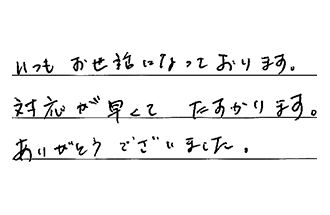 いつも お世話になっております。
対応が早くて たすかります。
ありがとうございました。